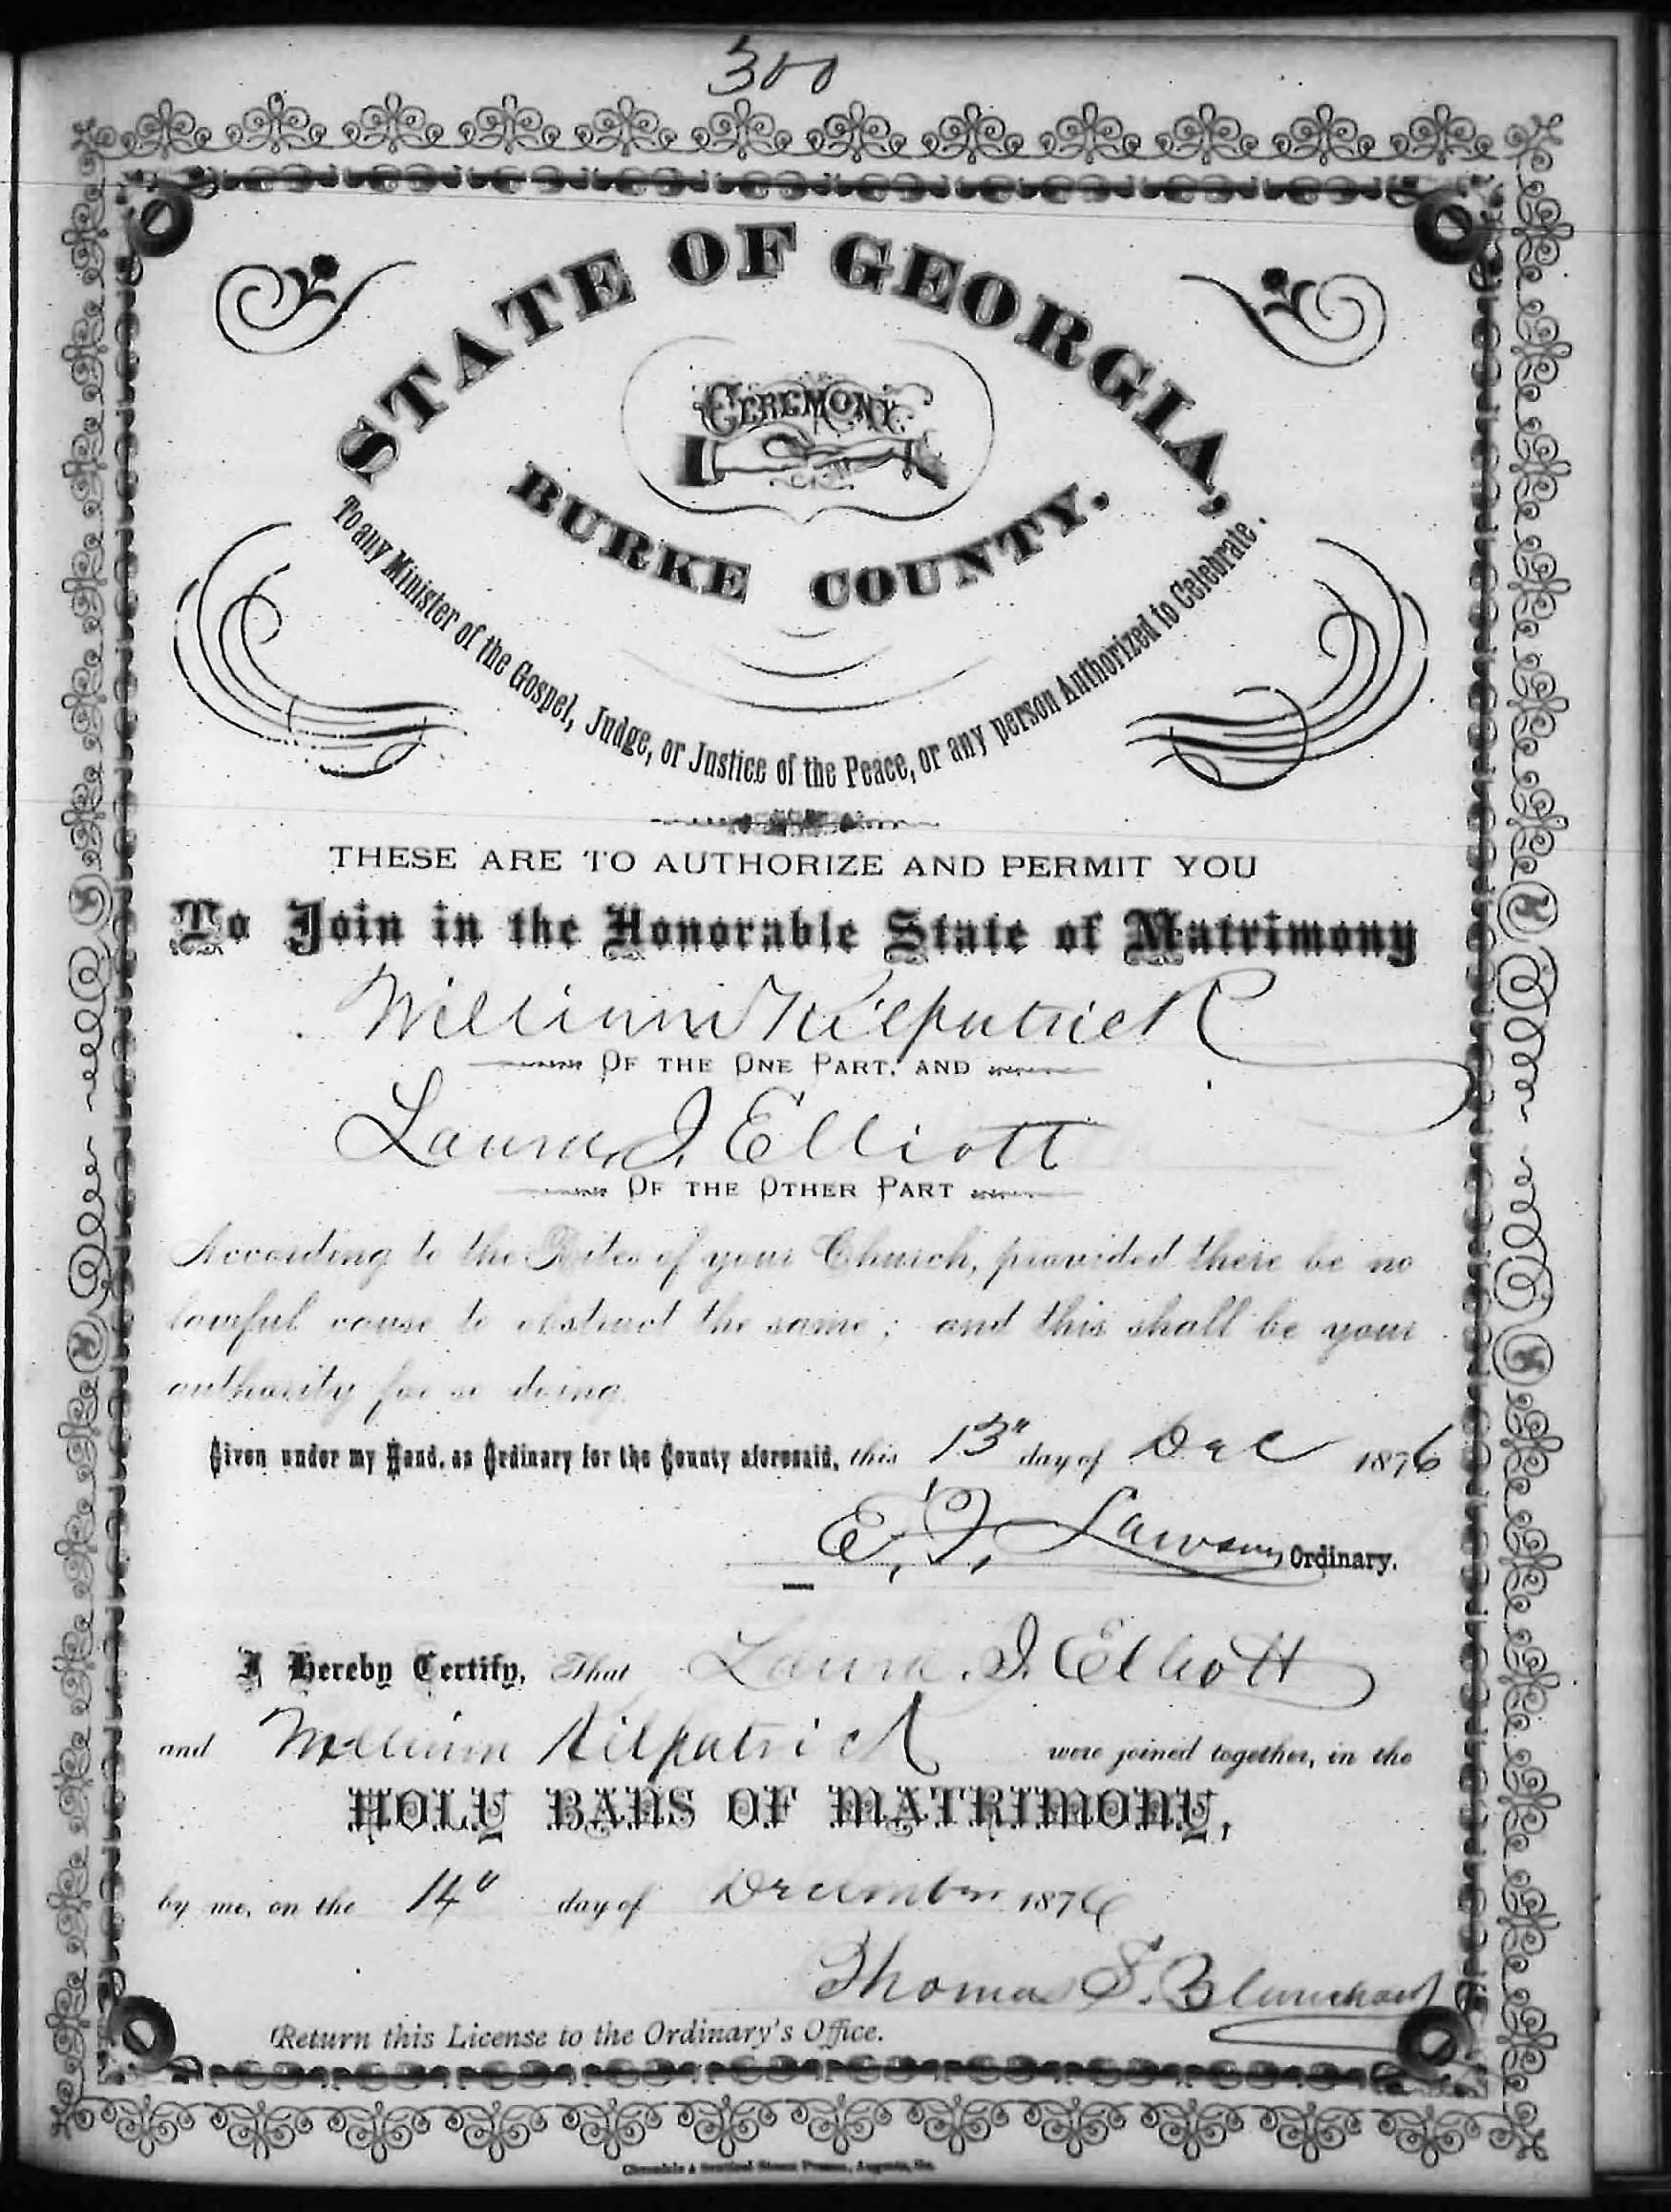 300
STATE OF GEORGIA,
CEREMONY
BURKE COUNTY.
To any Minister of the Gospel, Judge, or Justice of the Peace, or any person Authorized to Celebrate.
THESE ARE TO AUTHORIZE AND PERMIT YOU
To Join in the Honorable State of Matrimony
William Kilpatrick
OF THE ONE PART, AND
Laura J. Elliott
OF THE OTHER PART
According to the Rites of your Church, provided there be no
lawful cause to obstruct the same; and this shall be your
authority for so doing.
Given under my Hand, as Ordinary for the County aforesaid, this 13" day of Dec 1876
E. F. Lawson, Ordinary.
I Hereby Certify, That Laura. J. Elliott
and William Kilpatrick were joined together, in the
HOLY BANS OF MATRIMONY,
by me, on the 14" day of December 1876
Thomas S. Blanchard
Return this License to the Ordinary's Office.
Chronicle & Sentinel Steam Presses, Augusta, Ga.